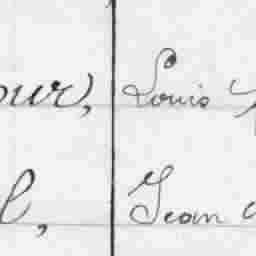 our, Louis
l, Jean